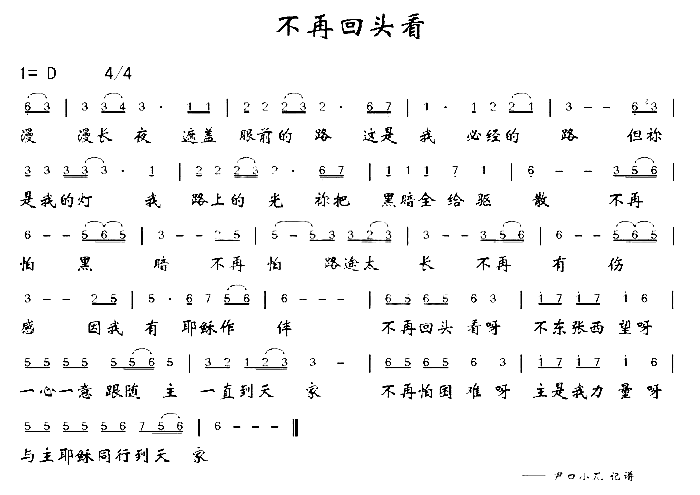 不再回头看
1= D 4/4
6 3 | 3 3 4 3 · 1 1 | 2 2 2 3 2 · 6 7 | 1 · 1 2 2 1 | 3 - - 6 3 |
漫 漫长 夜 遮盖 眼前的 路 这是 我 必经的 路 但祢
3 3 3 3 3 · 1 | 2 2 2 3 2 · 6 7 | 1 1 1 7 1 | 6 - - 3 5 6 |
是我的灯 我 路上的 光 祢把 黑暗全 给 驱 散 不再
6 - - 5 6 5 | 3 - - 2 5 | 5 - 5 3 3 2 3 | 3 - - 3 5 6 | 6 - - 5 6 5 |
怕 黑 暗 不再 怕 路途太 长 不再 有 伤
3 - - 2 5 | 5 · 6 7 5 6 | 6 - - - | 6 5 6 5 6 3 | 1 7 1 7 1 6 |
感 因我 有 耶稣作 伴 不再回头 看呀 不东张西 望呀
5 5 5 5 5 5 6 5 | 3 2 1 2 3 3 - | 6 5 6 5 6 3 | 1 7 1 7 1 6 |
一心一意 跟随 主 一直到天 家 不再怕困 难呀 主是我力 量呀
5 5 5 5 5 6 7 5 6 | 6 - - - ‖
与主耶稣同行到天 家